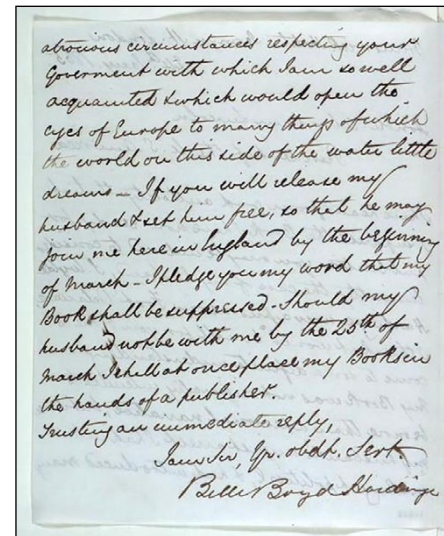 atrocious circumstances respecting your
Goverment with which I am so well
acquainted & which would open the
eyes of Europe to many things of which
the world on this side of the water little
dreams – If you will release my
husband & set him free, so that he may
join me here in England by the beginning
of March – I pledge you my word that my
Book shall be suppressed – Should my
husband not be with me by the 25th of
March I shall at once place my Book in
the hands of a publisher.
Trusting an immediate reply,
I am Sir, Yr. obdt. Sert
Belle Boyd Hardinge